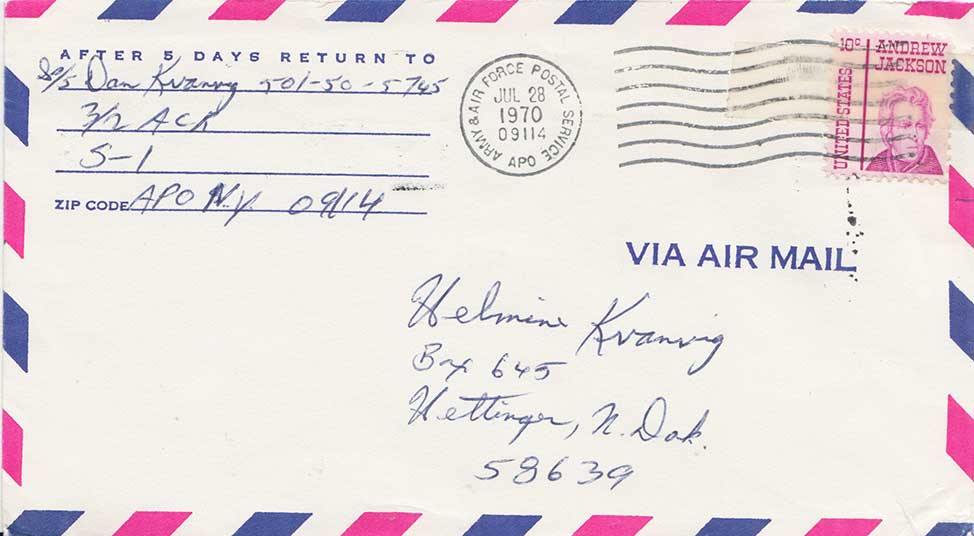 AFTER 5 DAYS RETURN TO
Sp/5 Dan Kvanvig 501-50-5745
3/2 ACR
S-1
ZIP CODE APO N.Y. 09114
ARMY & AIR FORCE POSTAL SERVICE
JUL 28
1970
09114
APO
10c ANDREW
JACKSON
UNITED STATES
VIA AIR MAIL
Helmine Kvanvig
Box 645
Hettinger, N. Dak.
58639